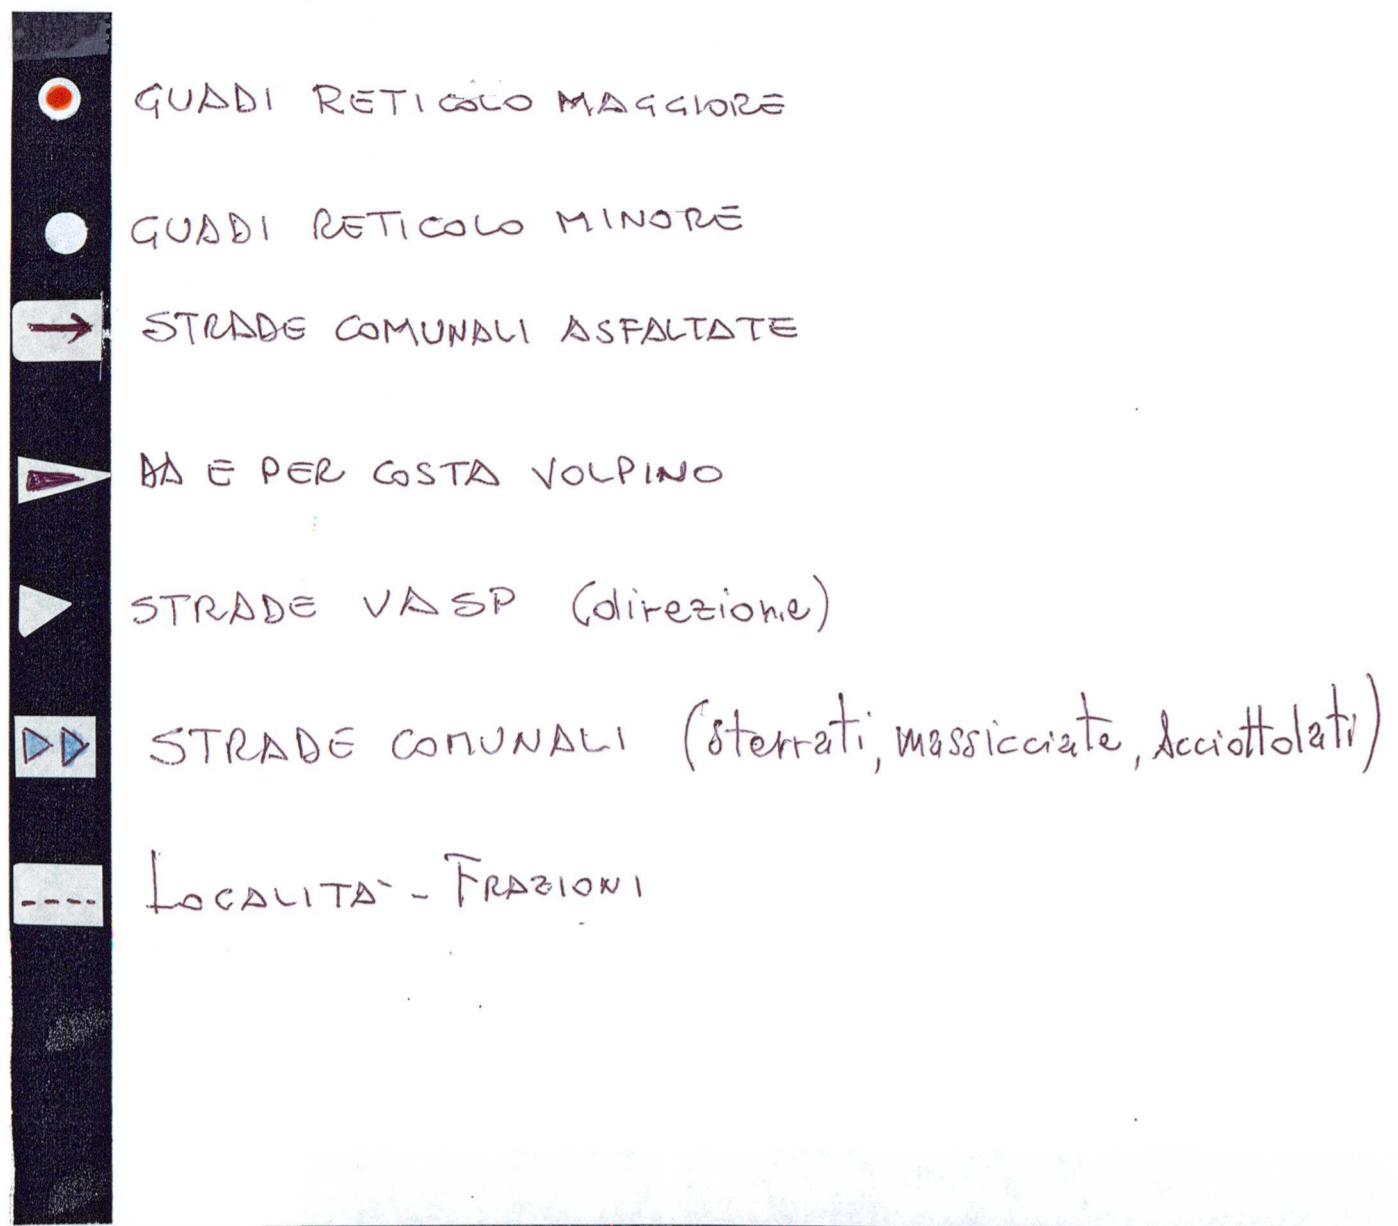 GUADI RETICOLO MAGGIORE
GUADI RETICOLO MINORE
STRADE COMUNALI ASFALTATE
DA E PER COSTA VOLPINO
STRADE VASP (direzione)
STRADE COMUNALI (sterrati, massicciate, Acciottolati)
LOCALITA' - FRAZIONI